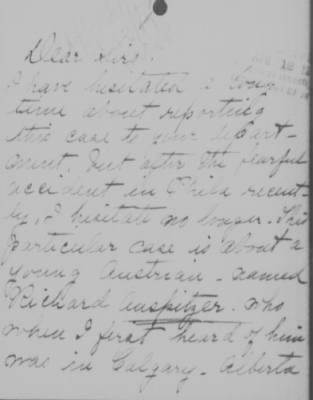 Dear Sirs:
I have hesitated a long
time about reporting
this case to your depart-
ment, but after the fearful
accident in Phila recent-
ly, I hesitate no longer. This
particular case is about a
young Austrian - named
Richard Auspitzer. who
when I first heard of him
was in Calgary - Alberta